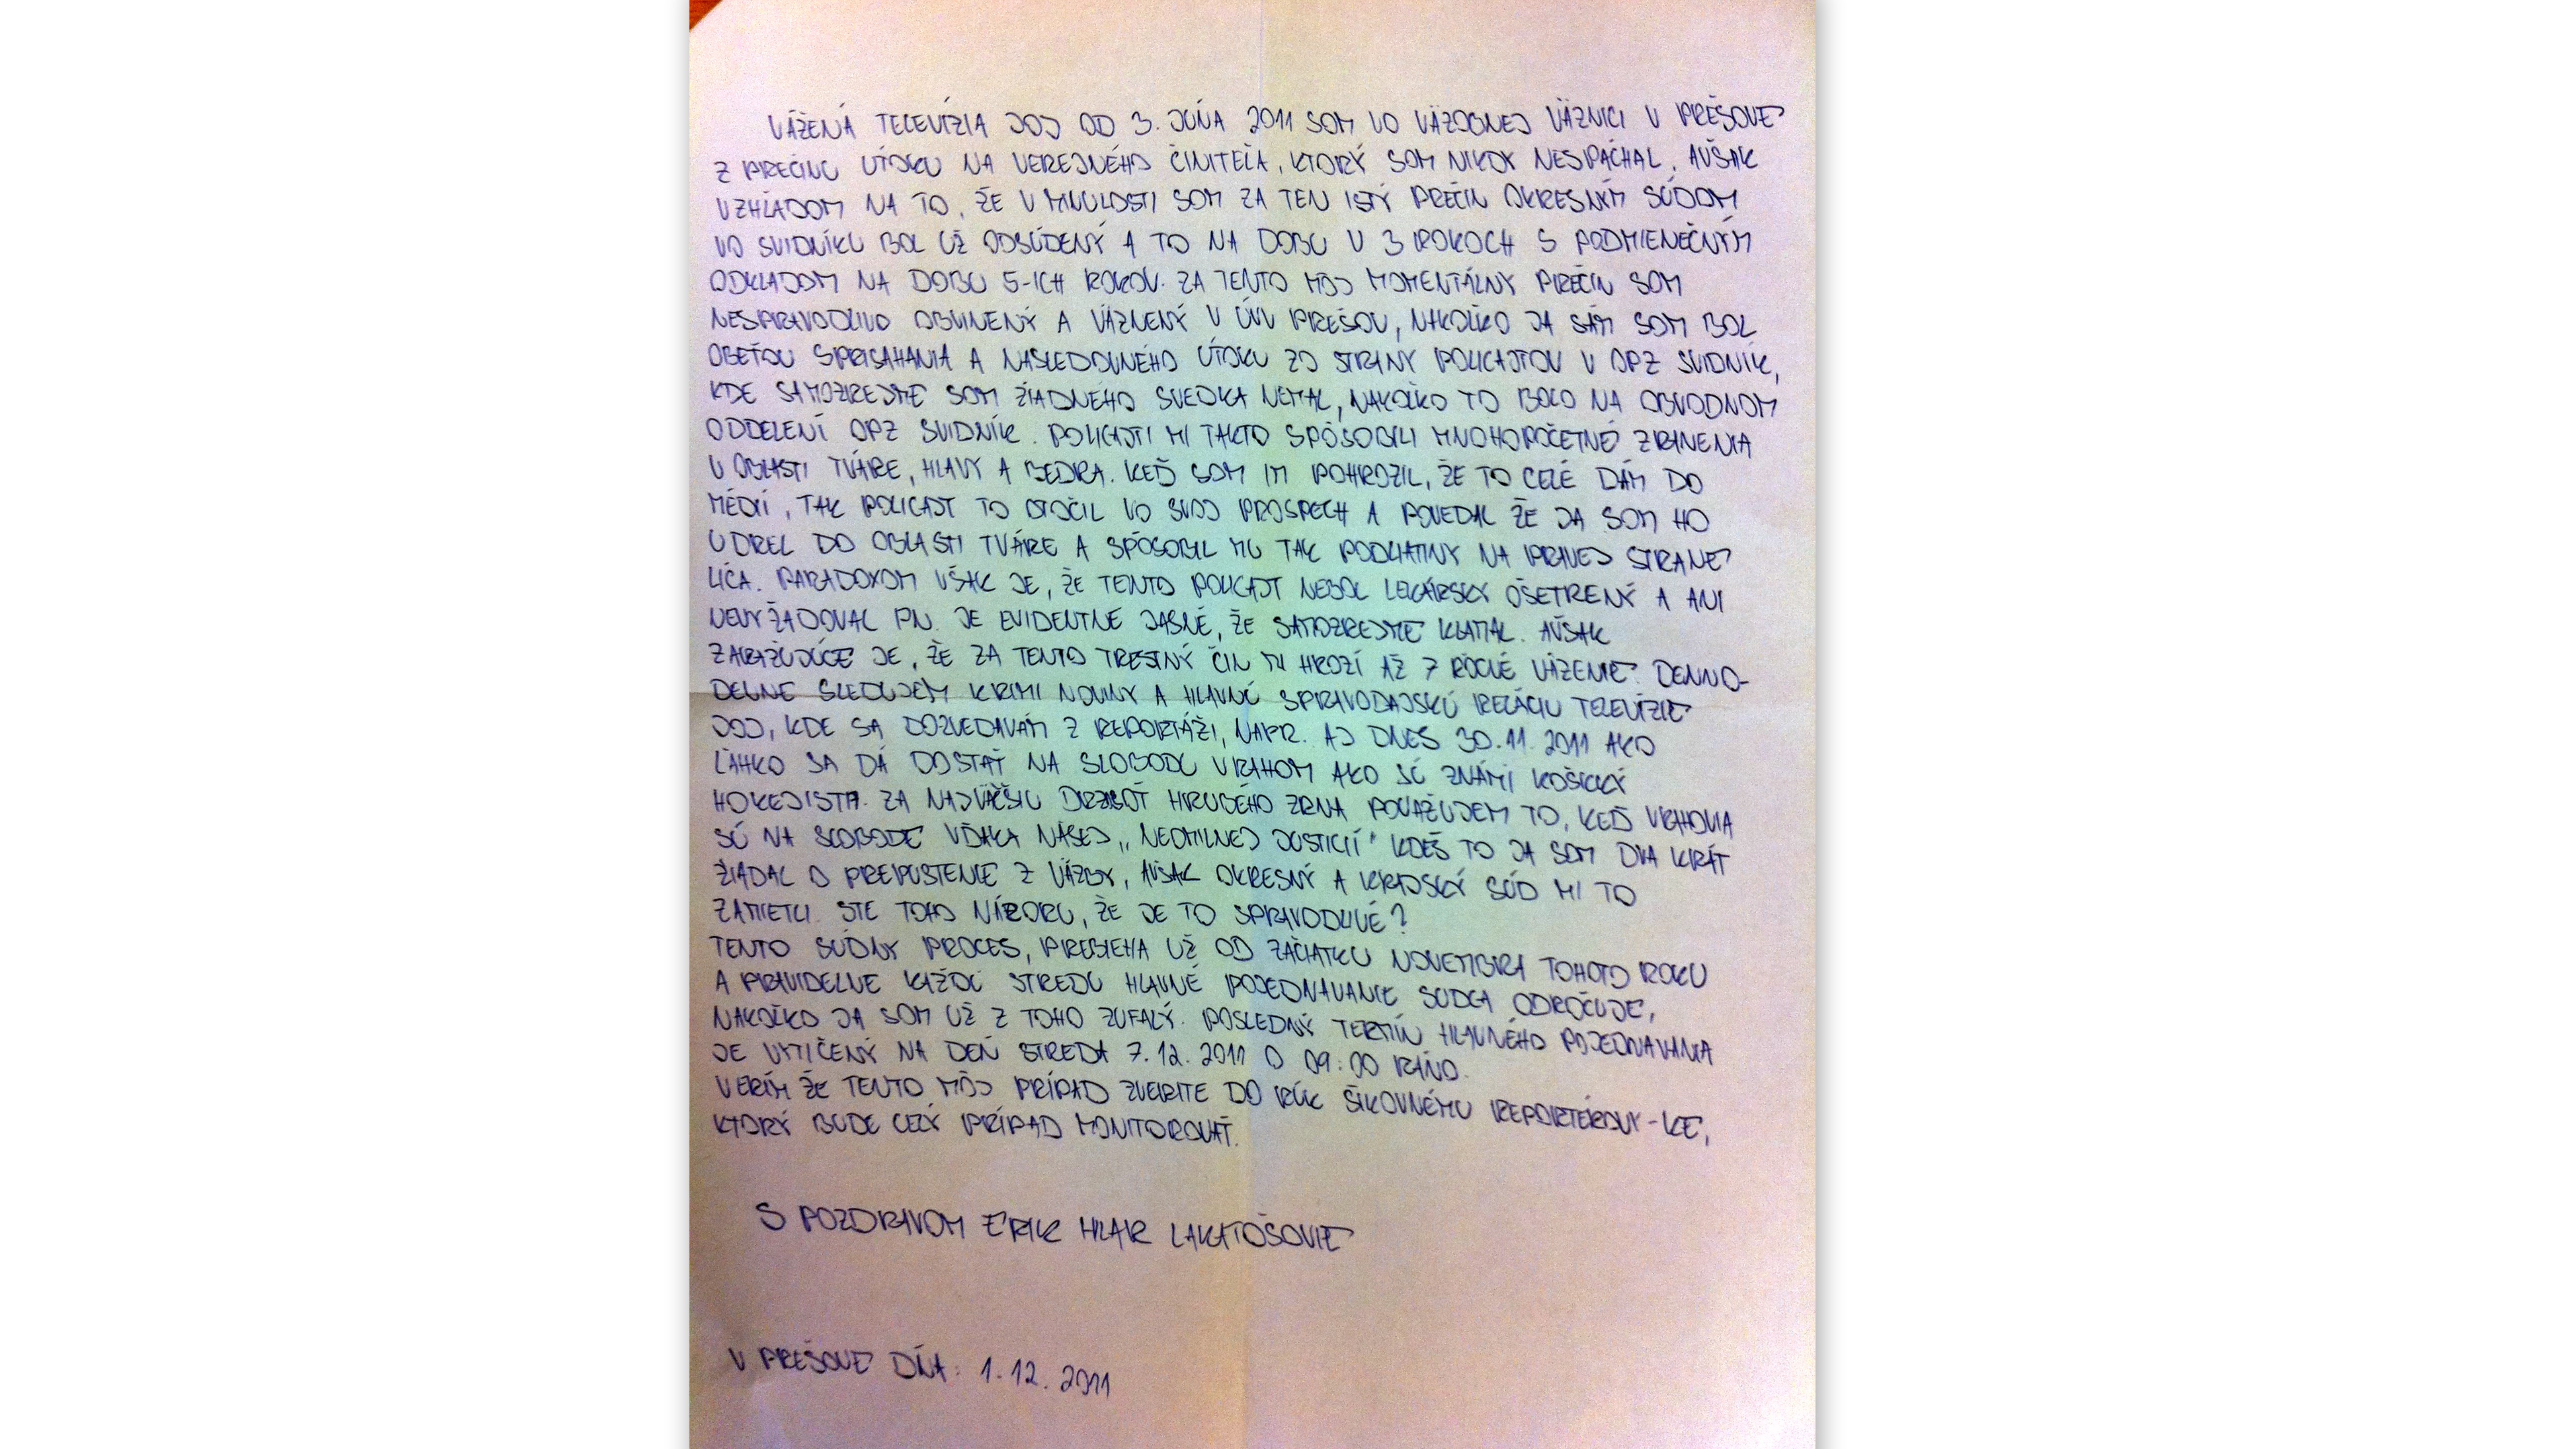 VÁŽENÁ TELEVÍZIA JOJ OD 3. JÚNA 2011 SOM VO VÄZOBNEJ VÄZNICI V PREŠOVE
Z PREČINU ÚTOKU NA VEREJNÉHO ČINITEĽA, KTORÝ SOM NIKDY NESPÁCHAL. AVŠAK
VZHĽADOM NA TO, ŽE V MINULOSTI SOM ZA TEN ISTÝ PREČIN OKRESNÝM SÚDOM
VO SVIDNÍKU BOL UŽ ODSÚDENÝ A TO NA DOBU V 3 ROKOCH S PODMIENEČNÝM
ODKLADOM NA DOBU 5-ICH ROKOV. ZA TENTO MÔJ MOMENTÁLNY PREČIN SOM
NESPRAVODLIVO OBVINENÝ A VÄZNENÝ V ÚVV PREŠOV, NAKOĽKO JA SÁM SOM BOL
OBEŤOU SPRISAHANIA A NÁSLEDOVNÉHO ÚTOKU ZO STRANY POLICAJTOV V OPZ SVIDNÍK,
KDE SAMOZREJME SOM ŽIADNÉHO SVEDKA NEMAL, NAKOĽKO TO BOLO NA OBVODNOM
ODDELENÍ OPZ SVIDNÍK. POLICAJTI MI TAKTO SPÔSOBILI MNOHOPOČETNÉ ZRANENIA
V OBLASTI TVÁRE, HLAVY A BEDRA. KEĎ SOM IM POHROZIL, ŽE TO CELÉ DÁM DO
MÉDIÍ, TAK POLICAJT TO OTOČIL VO SVOJ PROSPECH A POVEDAL ŽE JA SOM HO
UDREL DO OBLASTI TVÁRE A SPÔSOBIL MU TAK PODLIATINY NA PRAVEJ STRANE
LÍCA. PARADOXOM VŠAK JE, ŽE TENTO POLICAJT NEBOL LEKÁRSKY OŠETRENÝ A ANI
NEVYŽADOVAL PN. JE EVIDENTNE JASNÉ, ŽE SAMOZREJME KLAMAL. AVŠAK
ZARÁŽUJÚCE JE, ŽE ZA TENTO TRESTNÝ ČIN MI HROZÍ AŽ 7 ROČNÉ VÄZENIE. DENNO-
DENNE SLEDUJEM KRIMI NOVINY A HLAVNÚ SPRAVODAJSKÚ RELÁCIU TELEVÍZIE
JOJ, KDE SA DOZVEDÁVAM Z REPORTÁŽI, NAPR. AJ DNES 30.11. 2011 AKO
ĽAHKO SA DÁ DOSTAŤ NA SLOBODU VRAHOM AKO SÚ ZNÁMI KOŠICKÝ
HOKEJISTA. ZA NAJVÄČŠIU DRZOSŤ HRUBÉHO ZRNA POVAŽUJEM TO, KEĎ VRAHOVIA
SÚ NA SLOBODE VĎAKA NÁŠEJ „NEOMILNEJ JUSTICIÍ" KDEŠ TO JA SOM DVA KRÁT
ŽIADAL O PREPUSTENIE Z VÄZBY, AVŠAK OKRESNÝ A KRAJSKÝ SÚD MI TO
ZAMIETLI. STE TOHO NÁZORU, ŽE JE TO SPRAVODLIVÉ?
TENTO SÚDNY PROCES, PREBIEHA UŽ OD ZAČIATKU NOVEMBRA TOHOTO ROKU
A PRAVIDELNE KAŽDÚ STREDU HLAVNÉ POJEDNÁVANIE SUDCA ODROČUJE,
NAKOĽKO JA SOM UŽ Z TOHO ZÚFALÝ. POSLEDNÝ TERMÍN HLAVNÉHO POJEDNAVANIA
JE VYTIČENÝ NA DEŇ STREDA 7.12. 2011 O 09:00 RÁNO.
VERÍM ŽE TENTO MÔJ PRÍPAD ZVERITE DO RÚK ŠIKOVNÉMU REPORTÉROVY-KE,
KTORÝ BUDE CELÝ PRÍPAD MONITOROVAŤ.
S POZDRAVOM ERIK HLAR LAKATOŠOVIE
V PREŠOVE DŇA: 1.12. 2011